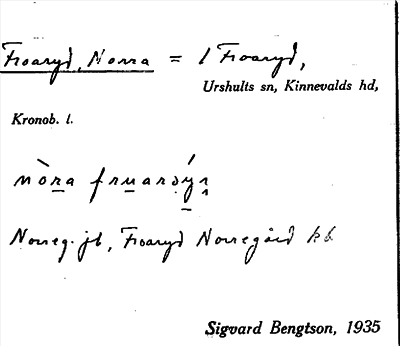 Froaryd, Norra = 1 Froaryd,
Urshults sn, Kinnevalds hd,
Kronob. l.
nòra
Norreg. jb, Froaryd Norregård kb
Sigvard Bengtson, 1935